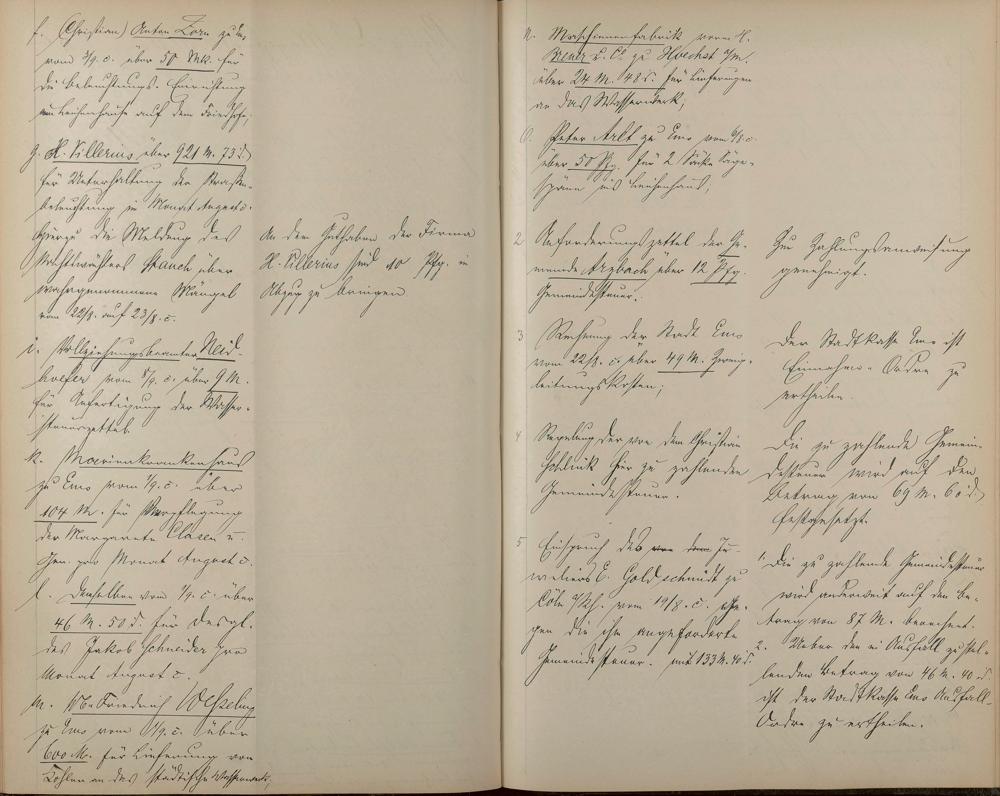 f. (Christian) Anton Zorn zu Ems
vom 3/9. c. über 50 Mk. für
die Beleuchtungs-Einrichtung
im Leichenhause auf dem Friedhofe;
g. H. Villerius über 921 M. 73 d.
für Unterhaltung der Straßen-
beleuchtung im Monat August c.
Hierzu die Meldung des
Wachtmeisters Strauch über
wahrgenommene Mängel
vom 22/8. auf 23/8. c.
An dem Guthaben der Firma
H. Villerius sind 40 Pfg. in
Abzug zu bringen
i. Vollziehungsbeamter Neid-
hoefer vom 5/9. c. über 9 M.
für Anfertigung der Wasser-
steuerzettel.
k. Marienkrankenhaus
zu Ems vom 1/9. c. über
104 M. für Verpflegung
der Margarete Clasen u.
Gen. pro Monat August c.
l. Demselben vom 1/9. c. über
46 M. 50 d. für desgl.
des Jakob Schneider pro
Monat August c.
m. Friedrich Wesseling
zu Ems vom 1/9. c. über
600 M. für Lieferung von
Kohlen an das städtische Wasserwerk;
n. Maschinenfabrik vorm. H.
Breuer u. Co. zu Hoechst a/M.
über 24 M. 48 d. für Lieferungen
an das Wasserwerk;
o. Peter Arlt zu Ems vom 6/8. c.
über 50 Pfg. für 2 Säcke Säge-
späne ins Leichenhaus;
2 Anforderungszettel der Ge-
meinde Arzbach über 12 Pfg.
Gemeindesteuer.
Zur Zahlungsanweisung
genehmigt.
3 Rechnung der Stadt Ems
vom 22/8. c. über 49 M.
leitungskosten;
Der Stadtkasse Ems ist
Einnahme-Ordre zu
ertheilen.
4 Regelung der von dem Christian
hier zu zahlenden
Gemeindesteuer.
Die zu zahlende Gemein-
desteuer wird auf den
Betrag von 69 M. 60 d.
festgesetzt.
5 Einspruch des von dem Ju-
weliers C. Goldschmidt zu
Cöln a/Rh. vom 19/8. c. ge-
gen die ihm angeforderte
Gemeindesteuer. mit 133 M. 40 d.
1. Die zu zahlende Gemeindesteuer
wird anderweit auf den Be-
trag von 87 M. berechnet.
2. Ueber den in Ausfall zu stel-
lenden Betrag von 46 M. 40 d.
ist der Stadtkasse Ems Ausfall-
Ordre zu ertheilen.